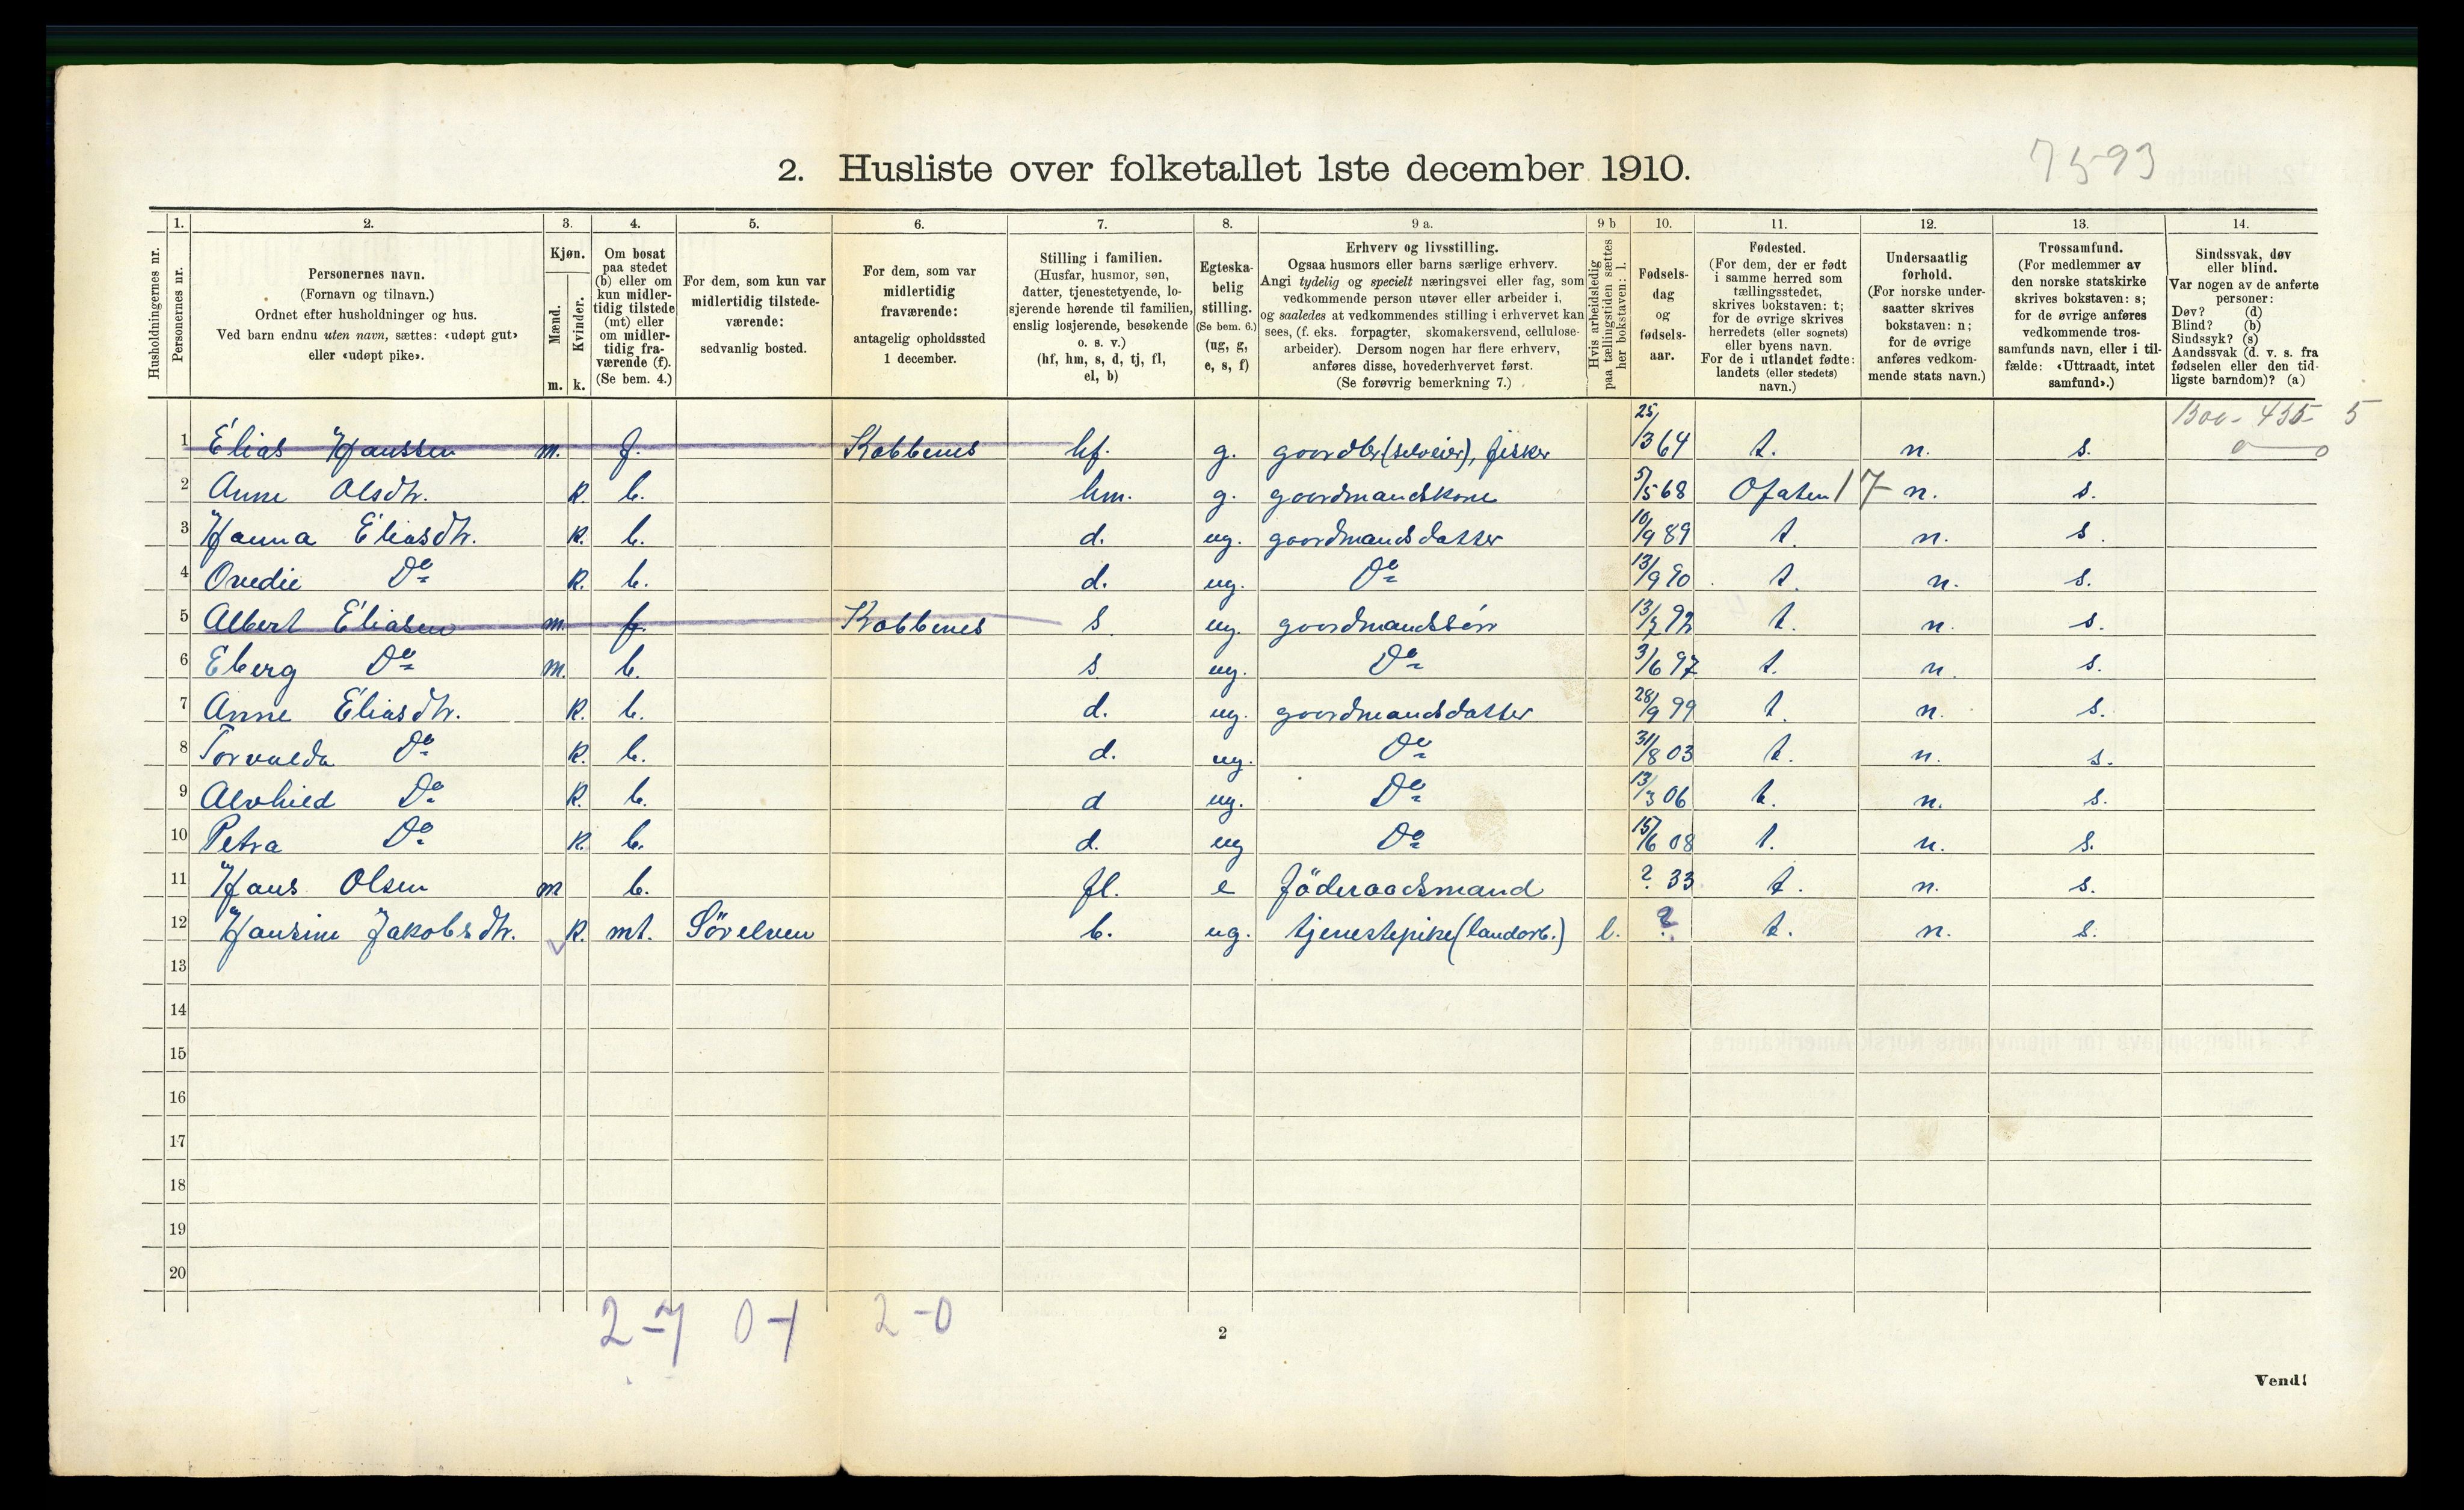 7593
2. Husliste over folketallet 1ste december 1910.
Husholdningernes nr.
1. Personernes nr.
2. Personernes navn.
(Fornavn og tilnavn.)
Ordnet efter husholdninger og hus.
Ved barn endnu uten navn, sættes: «udøpt gut»
eller «udøpt pike».
3. Kjøn.
Mænd. m.
Kvinder. k.
4. Om bosat
paa stedet
(b) eller om
kun midler-
tidig tilstede
(mt) eller
om midler-
tidig fra-
værende (f).
(Se bem. 4.)
5. For dem, som kun var
midlertidig tilstede-
værende:
sedvanlig bosted.
6. For dem, som var
midlertidig
fraværende:
antagelig opholdssted
1 december.
7. Stilling i familien.
(Husfar, husmor, søn,
datter, tjenestetyende, lo-
sjerende hørende til familien,
enslig losjerende, besøkende
o. s. v.)
(hf, hm, s, d, tj, fl,
el, b)
8. Egteska-
belig
stilling.
(Se bem. 6.)
(ug, g,
e, s, f)
9 a. Erhverv og livsstilling.
Ogsaa husmors eller barns særlige erhverv.
Angi tydelig og specielt næringsvei eller fag, som
vedkommende person utøver eller arbeider i,
og saaledes at vedkommendes stilling i erhvervet kan
sees, (f. eks. forpagter, skomakersvend, cellulose-
arbeider). Dersom nogen har flere erhverv,
anføres disse, hovederhvervet først.
(Se forøvrig bemerkning 7.)
9 b Hvis arbeidsledig
paa tællingstiden sættes
her bokstaven: l.
10. Fødsels-
dag
og
fødsels-
aar.
11. Fødested.
(For dem, der er født
i samme herred som
tællingsstedet,
skrives bokstaven: t;
for de øvrige skrives
herredets (eller sognets)
eller byens navn.
For de i utlandet fødte:
landets (eller stedets)
navn.)
12. Undersaatlig
forhold.
(For norske under-
saatter skrives
bokstaven: n;
for de øvrige
anføres vedkom-
mende stats navn.)
13. Trossamfund.
(For medlemmer av
den norske statskirke
skrives bokstaven: s;
for de øvrige anføres
vedkommende tros-
samfunds navn, eller i til-
fælde: «Uttraadt, intet
samfund».)
14. Sindssvak, døv
eller blind.
Var nogen av de anførte
personer:
Døv? (d)
Blind? (b)
Sindssyk? (s)
Aandssvak (d. v. s. fra
fødselen eller den tid-
ligste barndom)? (a)
1300 - 455 5
0 0
1 Elias Hanssen m. f. Kobbenes hf. g. goordbr (selveier), fisker 25/3 64 t. n. s.
2 Anne Olsdtr. k. b. hm. g. goordmandskone 5/5 68 Ofoten 17 n. s.
3 Hanna Eliasdtr. k. b. d. ug. goordmandsdatter 10/9 89 t. n. s.
4 Ovedie Do k. b. d. ug. Do 13/9 90 t. n. s.
5 Albert Eliasen m. f. Kobbenes s ug. goordmandssön 13/7 92 t. n. s.
6 Eberg Do m. b. s ug. Do 3/6 97 t. n. s.
7 Anne Eliasdtr. k. b. d. ug. goordmandsdatter 28/9 99 t. n. s.
8 Torvalda Do k. b. d. ug. Do 31/8 03 t. n. s.
9 Alvhild Do k. b. d ug. Do 13/3 06 t. n. s.
10 Petra Do k. b. d. ug Do 15/6 08 t. n. s.
11 Hans Olsen m b. fl. e föderaadsmand ? 33 t. n. s.
12 Hansine Jakobsdtr. k. mt. Sörelven b. ug. tjenestepike (landarb.) l. ? t. n. s.
13
14
15
16
17
18
19
20
2-7 0-1 2-0
2
Vend!